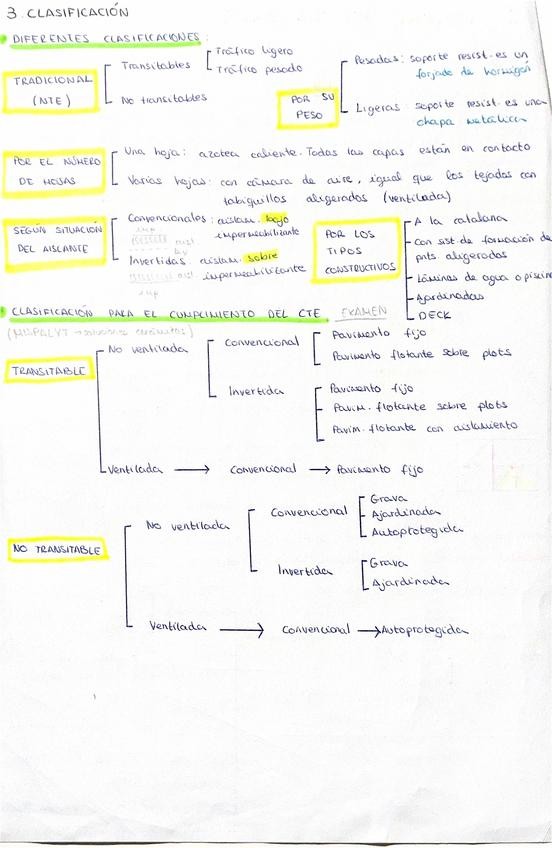 3. CLASIFICACIÓN
DIFERENTES CLASIFICACIONES:
TRADICIONAL
(NTE)
Transitables
Tráfico ligero
Tráfico pesado
No transitables
POR SU
PESO
Pesadas: soporte resist. es un
forjado de hormigón
Ligeras: soporte resist. es una
chapa metálica
POR EL NÚMERO
DE HOJAS
Una hoja: azotea caliente. Todas las capas están en contacto
Varias hojas: con cámara de aire, igual que los tejados con
tabiquillos aligerados (ventilada)
SEGÚN SITUACIÓN
DEL AISLANTE
Convencionales: aislam. bajo
impermeabilizante
imp
aisl
Invertidas aislam. sobre
impermeabilizante
aisl
imp
POR LOS
TIPOS
CONSTRUCTIVOS
A la catalana
Con sist. de formación de
pnts aligerados
Láminas de agua o piscina
Ajardinadas
DECK
CLASIFICACIÓN PARA EL CUMPLIMIENTO DEL CTE EXAMEN
TRANSITABLE
No ventilada
Convencional
Pavimento fijo
Pavimento flotante sobre plots
Invertida
Pavimento fijo
Pavim. flotante sobre plots
Pavim. flotante con aislamiento
Ventilada → Convencional → Pavimento fijo
NO TRANSITABLE
No ventilada
Convencional
Grava
Ajardinada
Autoprotegida
Invertida
Grava
Ajardinada
Ventilada → Convencional → Autoprotegida